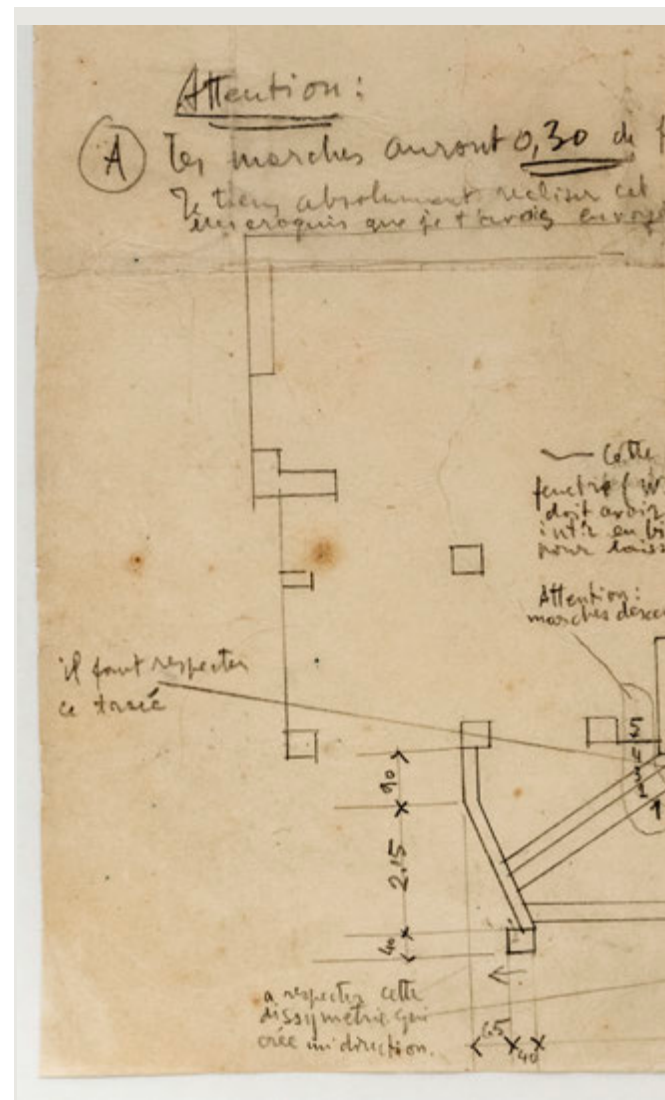 Attention :
A Les marches auront 0,30 de
Je tiens absolument réaliser cet
croquis que je t'avais envoyé
Cette
doit avoir
pour
Attention :
marches
il faut respecter
ce tracé
90
2.15
40
1
a respecter cette
dissymétrie qui
crée un direction.
65
40